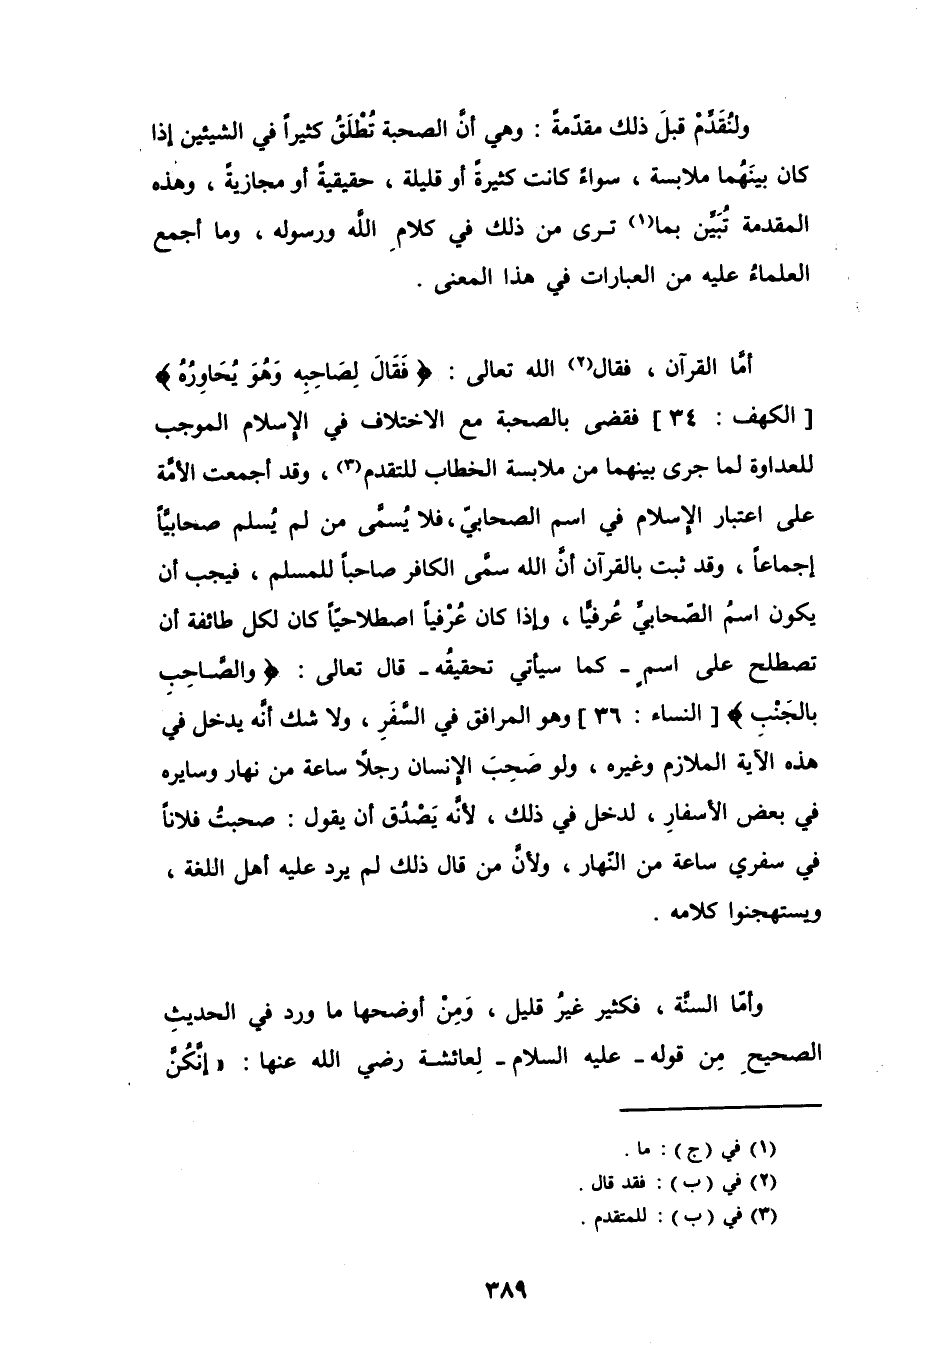 ولنُقَدِّمْ قبلَ ذلك مقدّمةً : وهي أنَّ الصحبة تُطْلَقُ كثيراً في الشيئين إذا
كان بينَهُما ملابسة ، سواءً كانت كثيرةً أو قليلة ، حقيقيةً أو مجازيةً ، وهذه
المقدمة تُبَيَّن بما(١) تـرى من ذلك في كلامِ اللَّه ورسوله ، وما أجمع
العلماءُ عليه من العبارات في هذا المعنى .
أمَّا القرآن ، فقال(٢) الله تعالى : ﴿ فَقَالَ لِصَاحِبِه وَهُوَ يُحَاوِرُهُ ﴾
[ الكهف : ٣٤ ] فقضى بالصحبة مع الاختلاف في الإسلام الموجب
للعداوة لما جرى بينهما من ملابسة الخطاب للتقدم(٣) ، وقد أجمعت الأمَّة
على اعتبار الإسلام في اسم الصحابيّ ، فلا يُسمَّى من لم يُسلم صحابيَّاً
إجماعاً ، وقد ثبت بالقرآن أنَّ الله سمَّى الكافر صاحباً للمسلم ، فيجب أن
يكون اسمُ الصّحابيِّ عُرفيَّا ، وإذا كان عُرْفياً اصطلاحيّاً كان لكل طائفة أن
تصطلح على اسمٍ ـ كما سيأتي تحقيقُه ـ قال تعالى : ﴿ والصَّـاحِبِ
بالجَنْبِ ﴾ [ النساء : ٣٦ ] وهو المرافق في السَّفَرِ ، ولا شك أنَّه يدخل في
هذه الآية الملازم وغيره ، ولو صَحِبَ الإنسان رجلاً ساعة من نهار وسايره
في بعض الأسفارِ ، لدخل في ذلك ، لأنَّه يَصْدُق أن يقول : صحبتُ فلاناً
في سفري ساعة من النّهار ، ولأنَّ من قال ذلك لم يرد عليه أهل اللغة ،
ويستهجنوا كلامه .
وأمّا السنَّة ، فكثير غيرُ قليل ، وَمِنْ أوضحها ما ورد في الحديثِ
الصحيحِ مِن قوله ـ عليه السلام ـ لِعائشـة رضي الله عنها : « إنَّكُنَّ
(١) في (ج) : ما .
(٢) في (ب) : فقد قال .
(٣) في (ب) : للمتقدم .
٣٨٩